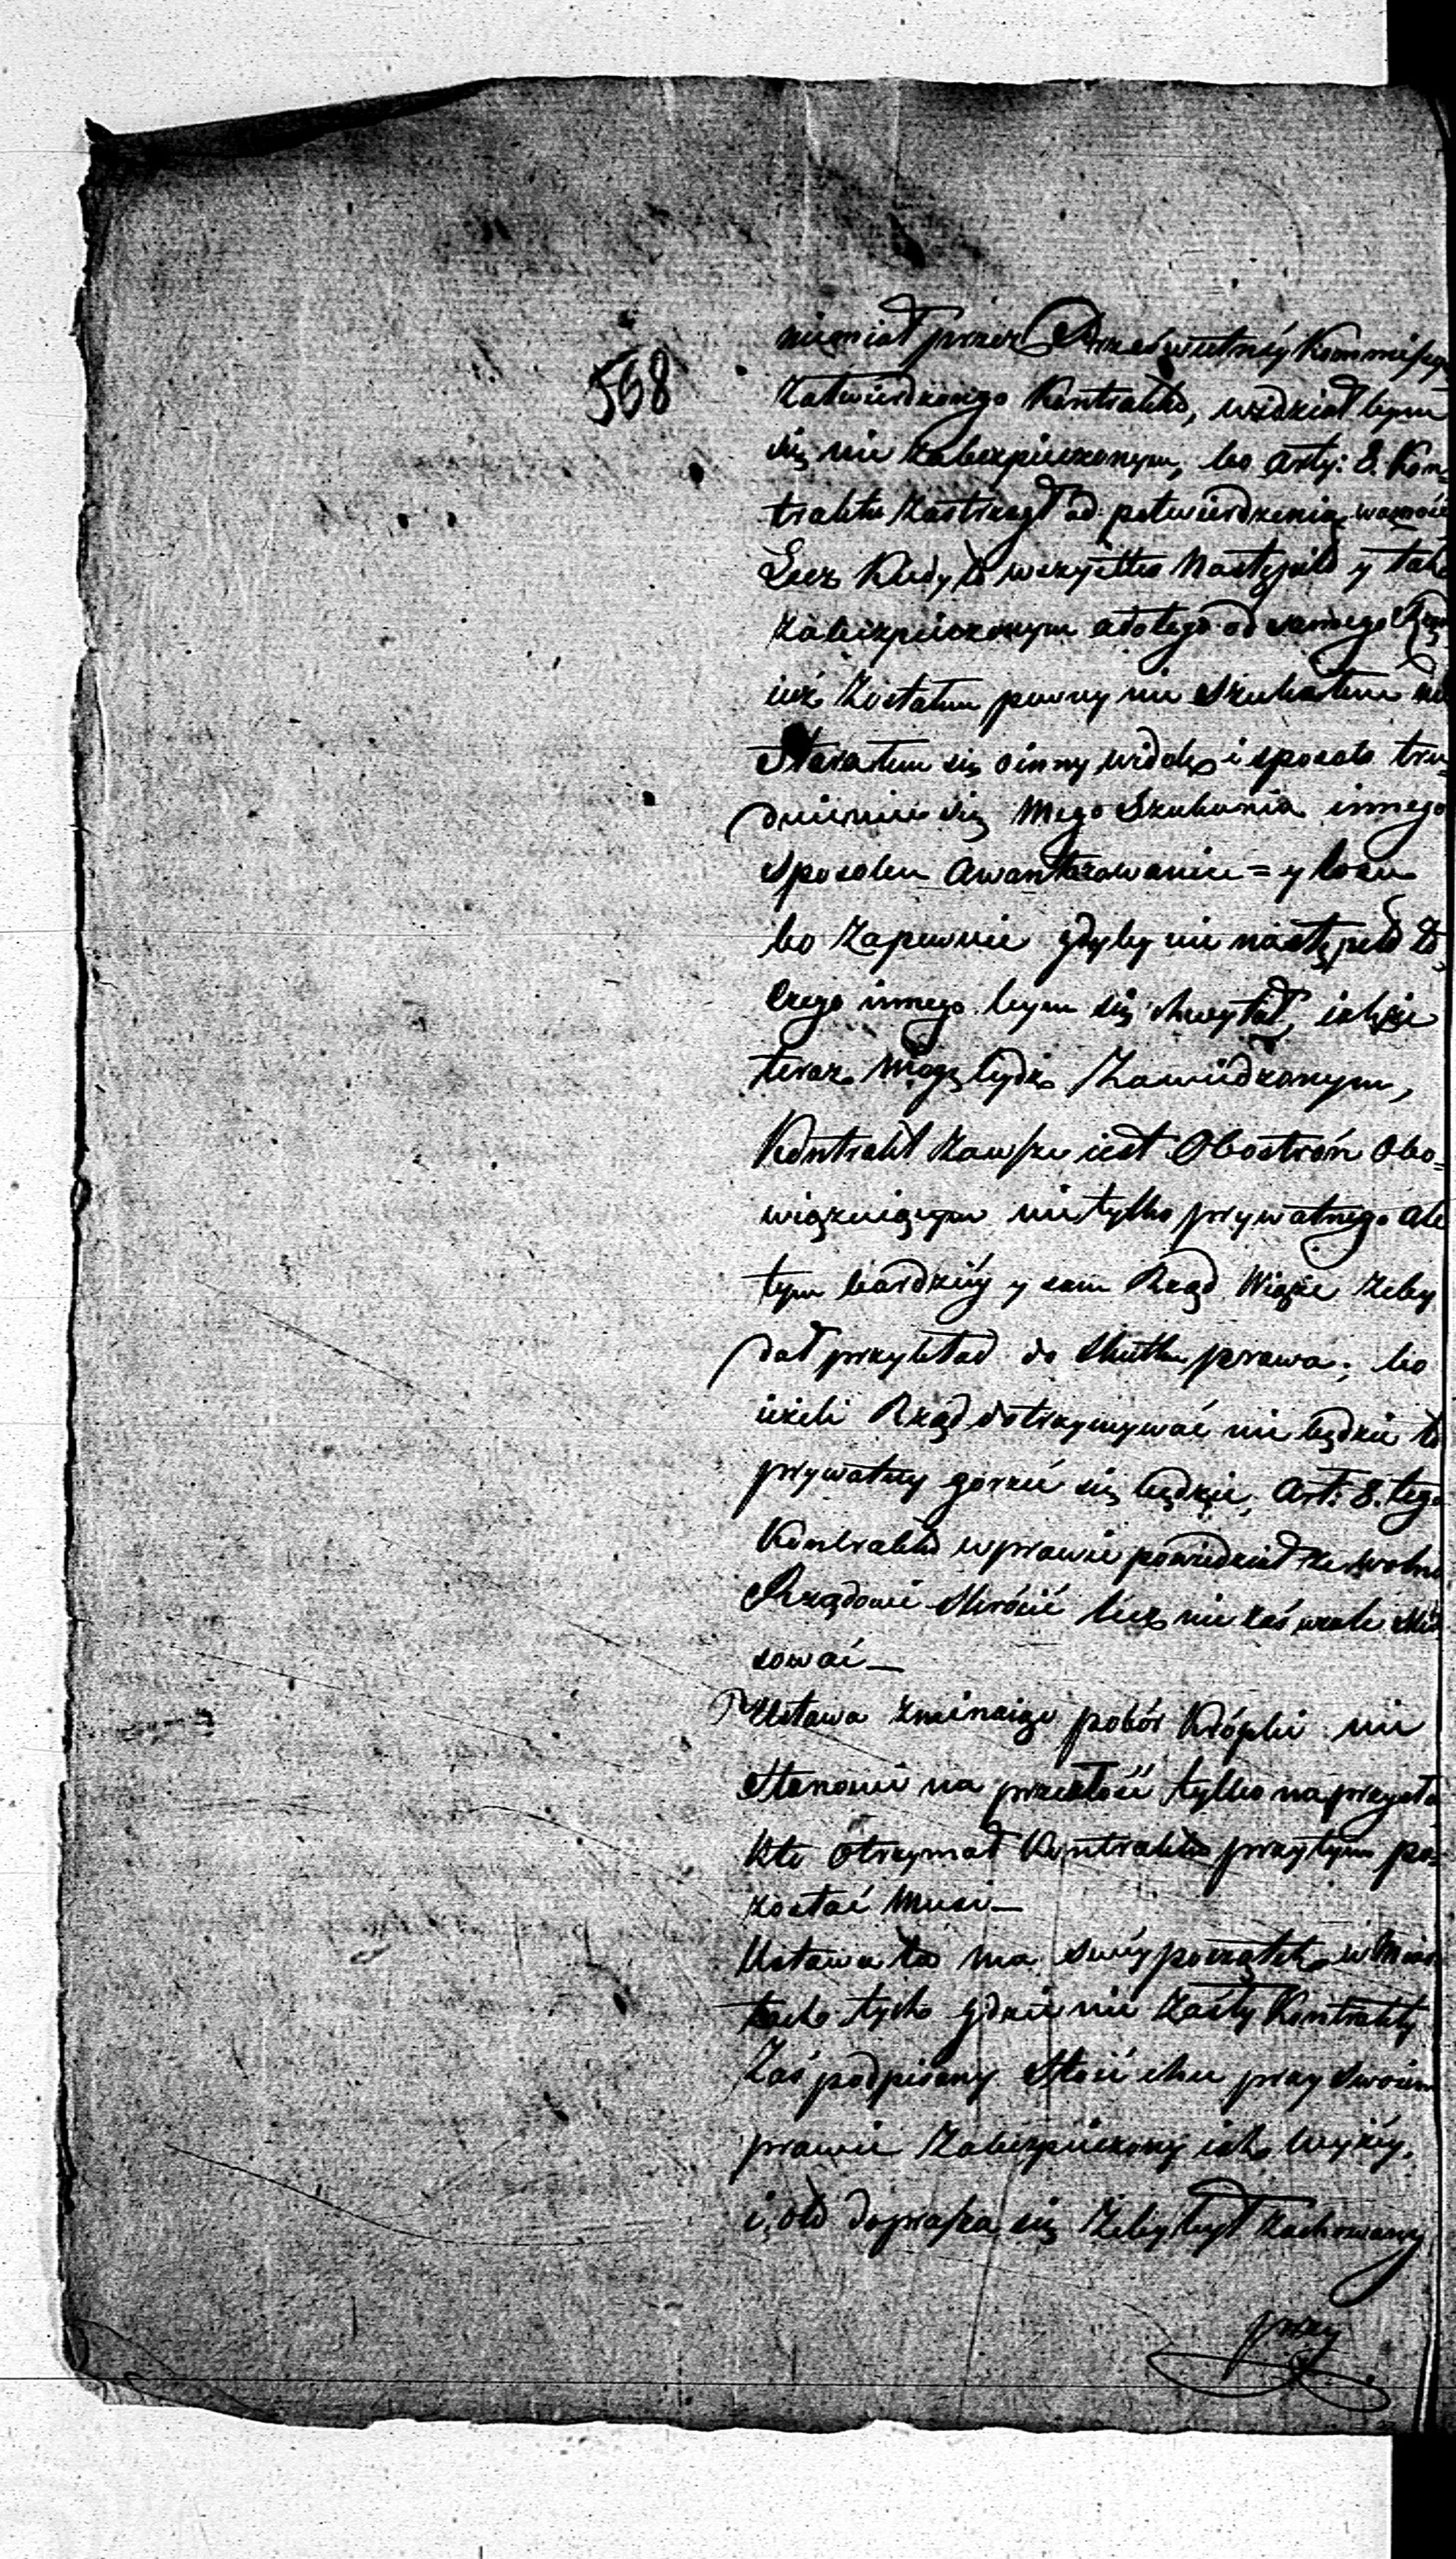 568
niemiał przez Prześwietnéy Kommissyi
Zatwierdzonego Kontraktu, widział bym
się nie zabezpieczonym, bo arty: 8. Kon=
traktu zastrzegł od potwierdzenia
Lecz Kiedy to wszystko Nastąpiło y tak
zabezpieczonym a do tego od samego
iuż Zostałem pewny nie Szukałem
Starałem się o inny widok i sposób tru=
dnienie się Mego Szukania innego
Sposobu Awantażowania = y losu
bo Zapewnie gdyby nie nastąpiło to
Czego innego bym się chwytał,
teraz Mogę bydz Zawiedzonym,
Kontrakt zawsze iest Obostrón Obo=
wiązuiącym nie tylko prywatnego ale
tym bardziéy y sam Rząd Wiąże żeby
dał przykład do Skutku prawa; bo
ieżeli Rząd dotrzymywać nie będzie to
prywatny gorzéć się będzie, Art: 8. tego
Kontraktu wprawie powiedział że wolno
Rządowi Skrócić lecz nie zaś wcale
sować —
Ustawa pobór Kópki nie
Stanowi na przeszłość tylko na przyszło
Kto Otrzymał Kontrakt przytym po=
zostać Musi —
Ustawa ta ma swóy początek w Mias
tach tych gdzie nie zaszły Kontrakty
Zaś podpisany Stoić chce przy swoim
prawie Zabezpieczony iak Wyżéy.
i oto doprasza się żeby był zachowany
przy